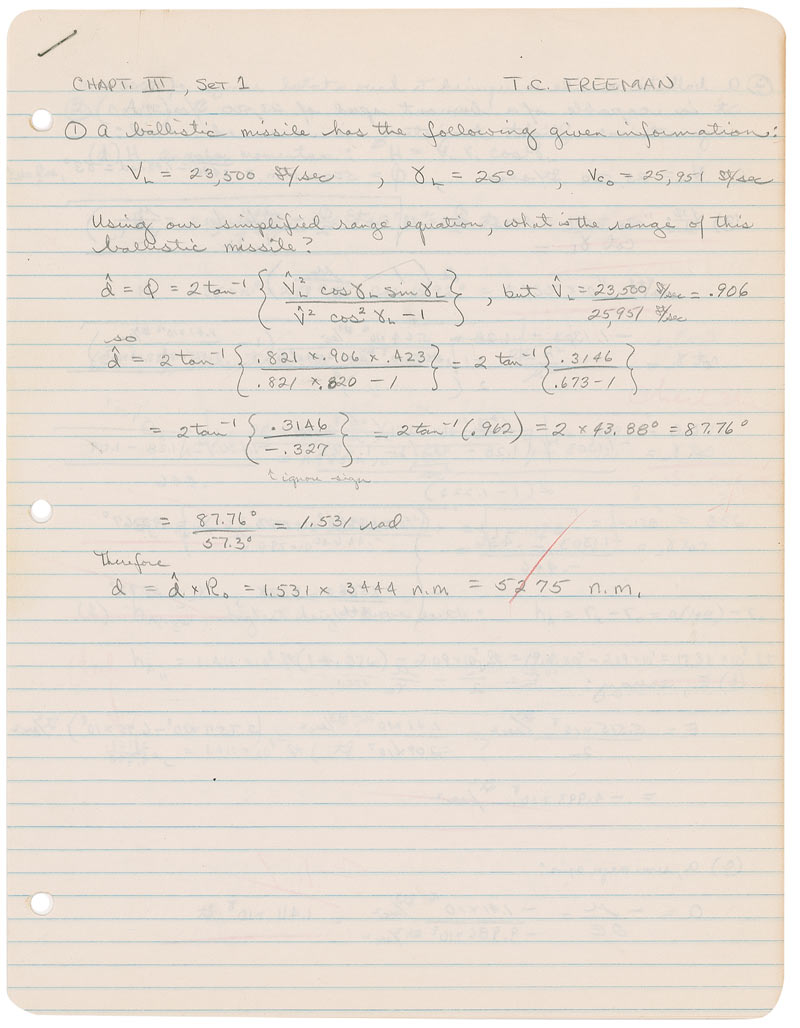 CHAPT. III, SET 1 T.C. FREEMAN
① A ballistic missile has the following given information:
V_L = 23,500 ft/sec , γ_L = 25° , V_C₀ = 25,951 ft/sec
Using our simplified range equation, what is the range of this
ballistic missile?
d̂ = φ = 2 tan⁻¹ { V̂_L² cos γ_L sin γ_L / V̂² cos² γ_L - 1 } , but V̂_L = 23,500 ft/sec / 25,951 ft/sec = .906
so
d̂ = 2 tan⁻¹ { .821 x .906 x .423 / .821 x .820 - 1 } = 2 tan⁻¹ { .3146 / .673 - 1 }
= 2 tan⁻¹ { .3146 / -.327 } = 2 tan⁻¹ (.962) = 2 x 43.88° = 87.76°
↑ ignore sign
= 87.76° / 57.3° = 1.531 rad
Therefore
d = d̂ x R₀ = 1.531 x 3444 n.m. = 5275 n.m.